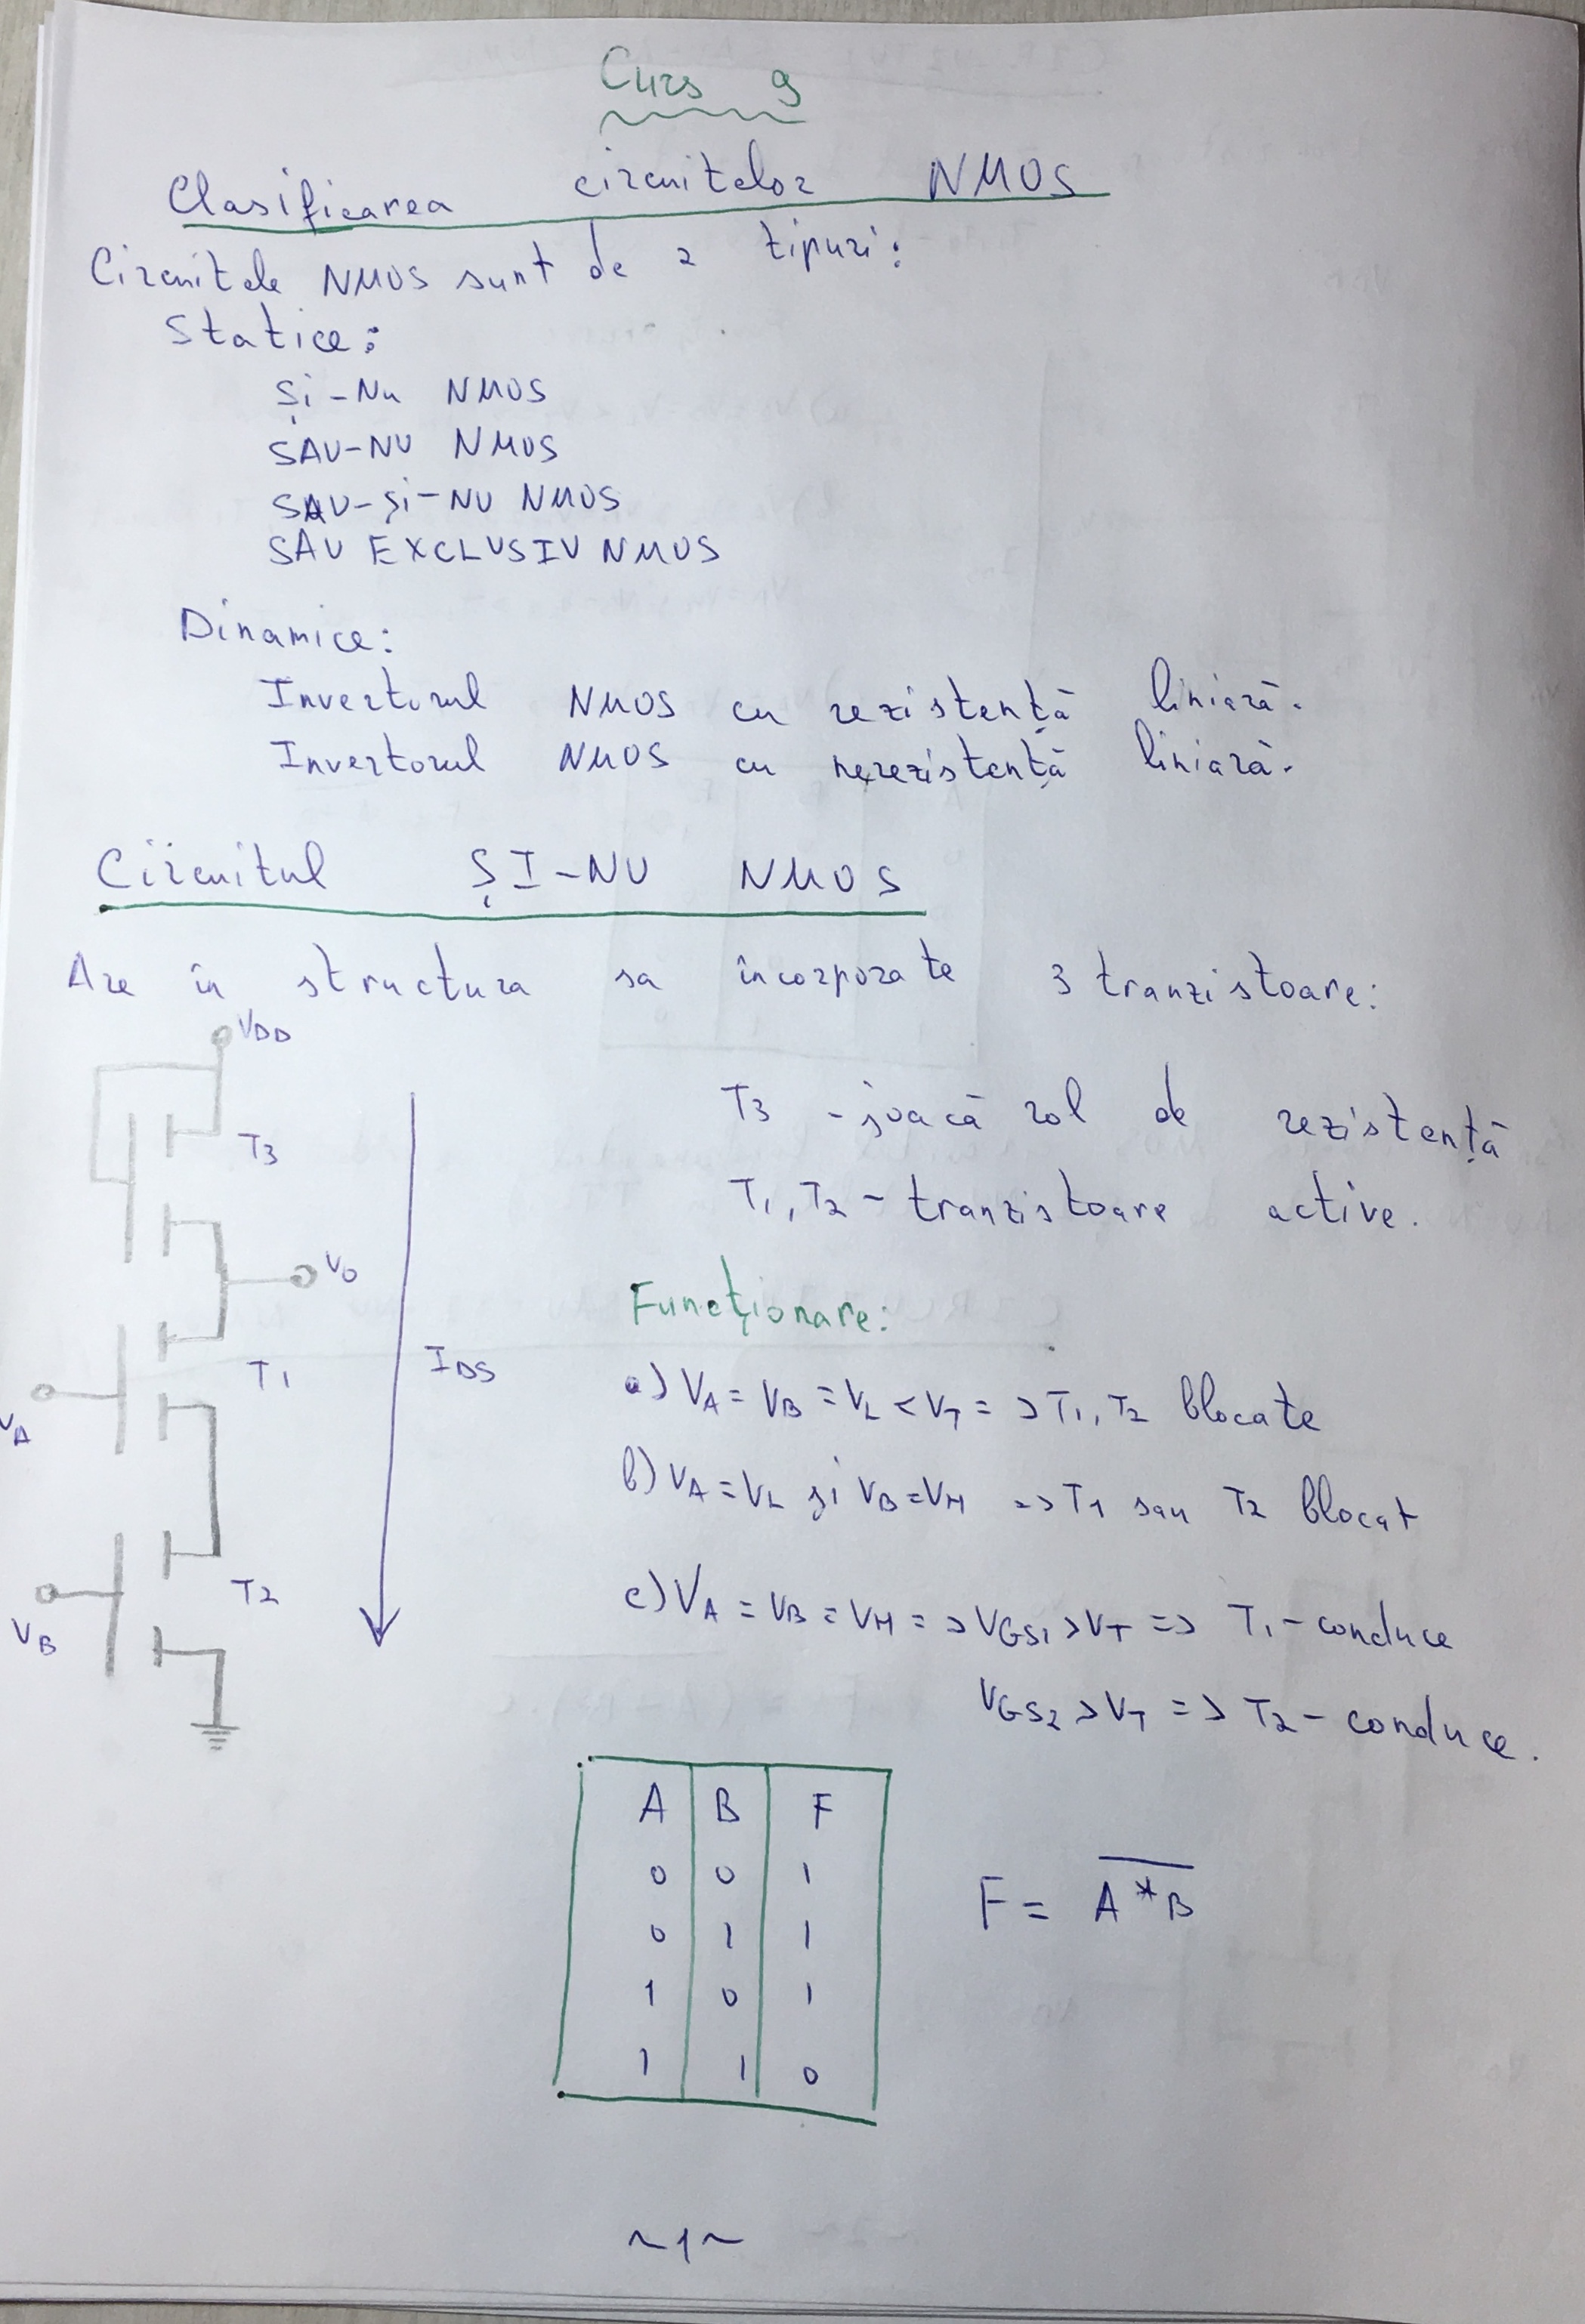 Curs 9
Clasificarea circuitelor NMOS
Circuitele NMOS sunt de 2 tipuri:
Statice:
Și-Nu NMOS
SAU-NU NMOS
SAU-Și-NU NMOS
SAU EXCLUSIV NMOS
Dinamice:
Invertorul NMOS cu rezistență liniară.
Invertorul NMOS cu nerezistență liniară.
Circuitul ȘI-NU NMOS
Are în structura sa incorporate 3 tranzistoare:
VDD
T3
V0
T1
VA
T2
VB
IDS
T3 - joacă rol de rezistență
T1, T2 - tranzistoare active.
Funcționare:
a) VA = VB = VL < VT => T1, T2 blocate
b) VA = VL și VB = VH => T1 sau T2 blocat
c) VA = VB = VH => VGS1 > VT => T1 - conduce
VGS2 > VT => T2 - conduce.
A B F
0 0 1
0 1 1
1 0 1
1 1 0
F = \overline{A*B}
~1~